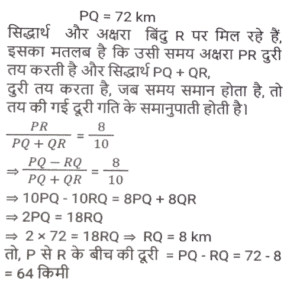 PQ = 72 km
सिद्धार्थ और अक्षरा बिंदु R पर मिल रहे हैं,
इसका मतलब है कि उसी समय अक्षरा PR दुरी
तय करती है और सिद्धार्थ PQ + QR,
दुरी तय करता है, जब समय समान होता है, तो
तय की गई दूरी गति के समानुपाती होती है।
PR / PQ + QR = 8 / 10
⇒ PQ − RQ / PQ + QR = 8 / 10
⇒ 10PQ - 10RQ = 8PQ + 8QR
⇒ 2PQ = 18RQ
⇒ 2 × 72 = 18RQ ⇒ RQ = 8 km
तो, P से R के बीच की दूरी = PQ - RQ = 72 - 8
= 64 किमी